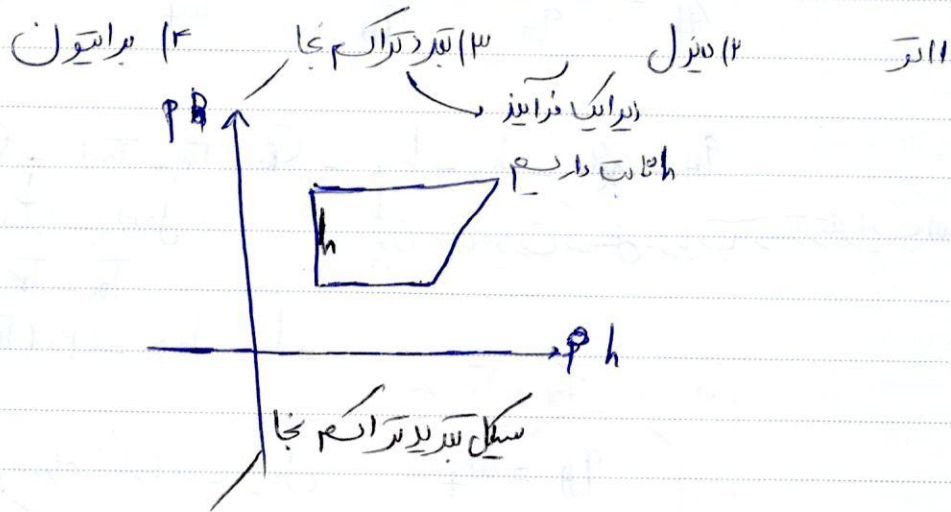 ۱) اتو ۲) دیزل ۳) تبرید تراکم بخار ۴) برایتون
زیرا یک فرآیند
h ثابت داریم
P
h
h
سیکل تبرید تراکم بخار